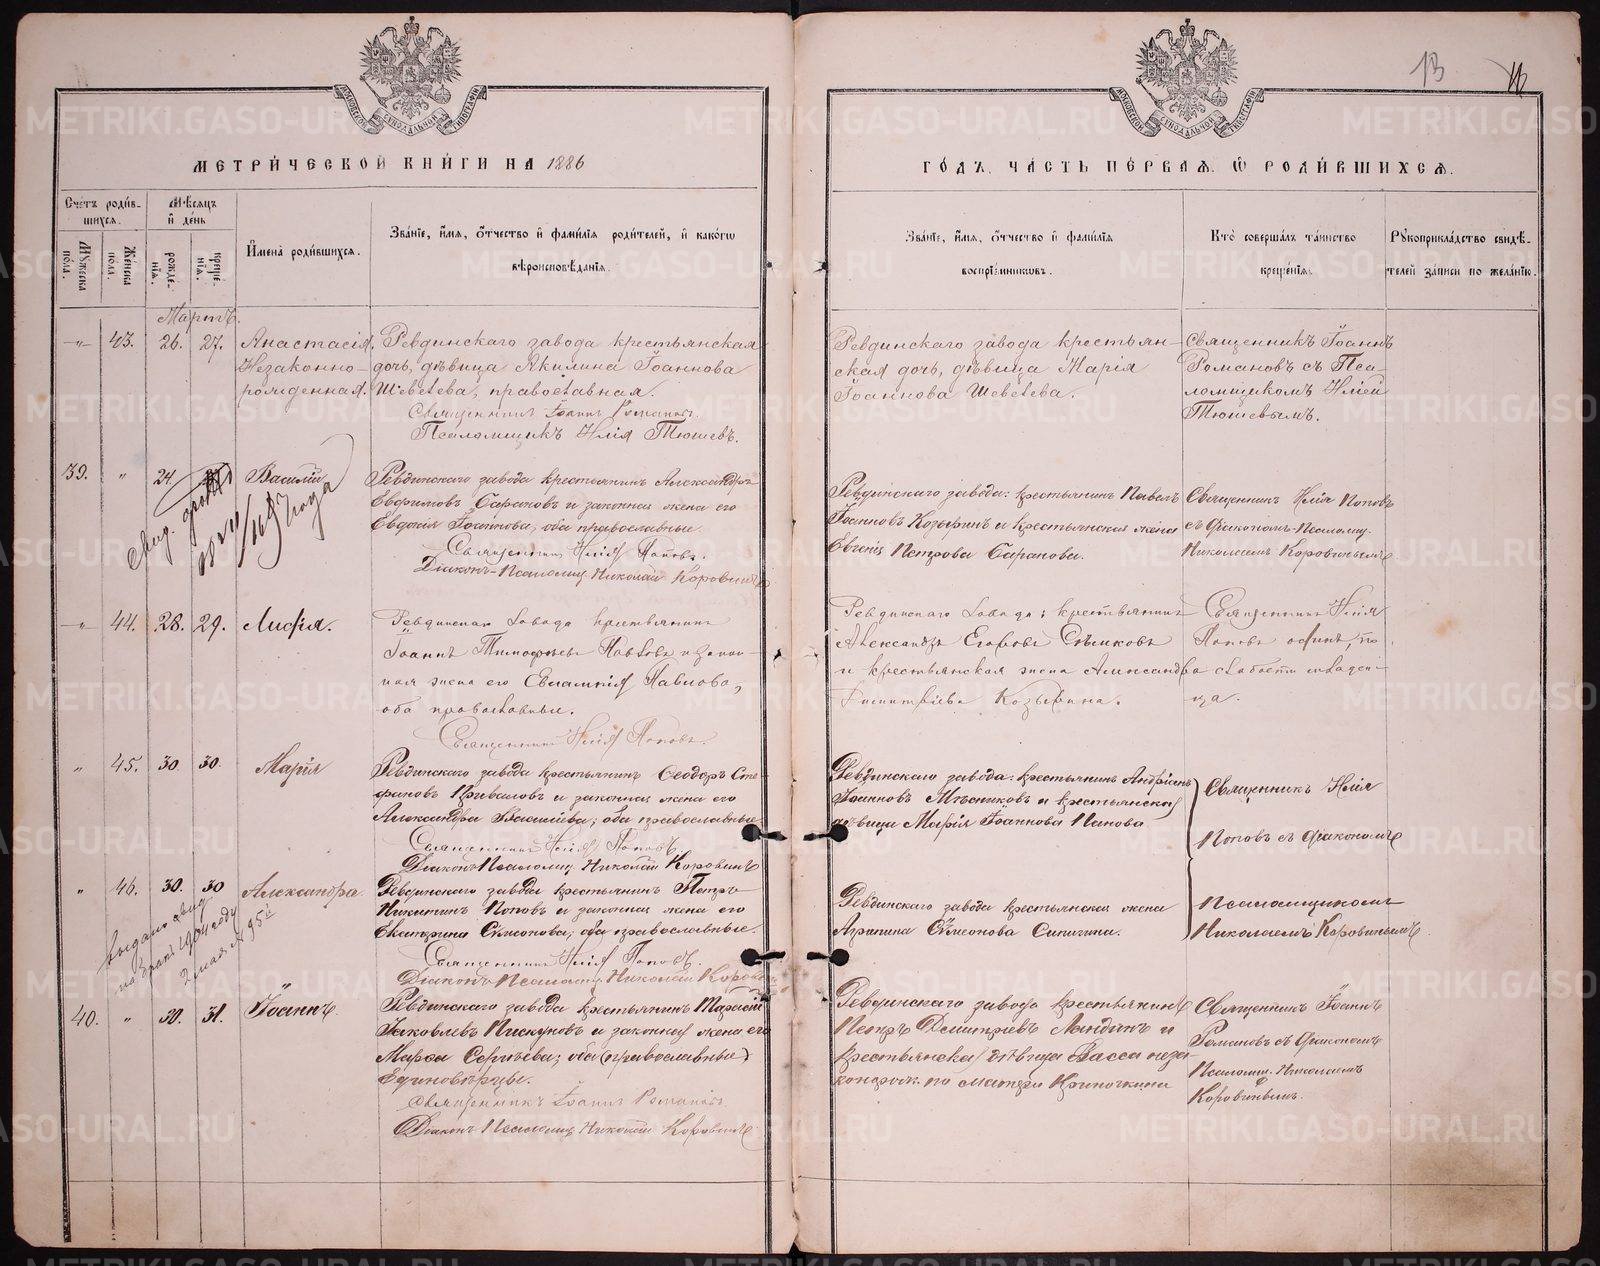 13
МЕТРИЧЕСКОЙ КНИГИ НА 1886
ГОДЪ, ЧАСТЬ ПЕРВАЯ, Ѿ РОДИВШИХСЯ.
Счетъ родив-
шихся.
Мужеска пола.
Женска пола.
Мѣсяцъ и день
рожде-
нія.
креще-
нія.
Имена родившихся.
Званіе, имя, отчество и фамилія родителей, и какогѡ
вѣроисповѣданія.
Званіе, имя, отчество и фамилія
воспріемниковъ.
Кто совершалъ таинство
крещенія.
Рукоприкладство свидѣ-
телей записи по желанію.
Мартъ.
43. 26. 27. Анастасія,
Незаконно-
рожденная.
Ревдинскаго завода крестьянская
дочь, дѣвица Акилина Іоаннова
Шевелева, православная.
Священникъ Іоаннъ Романовъ.
Псаломщикъ Илія Тюшевъ.
Ревдинскаго завода крестьян-
ская дочь, дѣвица Марія
Іоаннова Шевелева.
Священникъ Іоаннъ
Романовъ съ Пса-
ломщикомъ Иліей
Тюшевымъ.
39. " 24. Василій
года
Ревдинскаго завода крестьянинъ Александръ
Евфимовъ Сарановъ и законная жена его
Евдокія Іоаннова, оба православные.
Священникъ Илія Поповъ.
Діаконъ-Псаломщ. Николай Коровинъ
Ревдинскаго завода: крестьянинъ Павелъ
Іоанновъ Козыринъ и крестьянская жена
Евгенія Петрова Саранова.
Священникъ Илія Поповъ
съ діакономъ-Псаломщ.
Николаемъ Коровинымъ
44. 28. 29. Лидія.
Ревдинскаго завода крестьянинъ
Іоаннъ Тимофѣевъ Павловъ и закон-
ная жена его Евлампія Павлова,
оба православные.
Священникъ Илія Поповъ.
Ревдинскаго завода: крестьянинъ
Александръ Егоровъ
и крестьянская жена Александра
Димитріева Козырина.
Священникъ Илія
Поповъ одинъ, по
слабости младен-
ца.
" 45. 30. 30. Марія
Ревдинскаго завода крестьянинъ Ѳеодоръ Сте-
фановъ Приваловъ и законная жена его
Александра Васильева; оба православные.
Священникъ Илія Поповъ.
Діаконъ Псаломщ. Николай Коровинъ
Ревдинскаго завода: крестьянинъ Андріанъ
Іоанновъ Мясниковъ и крестьянская
дѣвица Марія Іоаннова Панова
Священникъ Илія
Поповъ съ діакономъ
" 46. 30. 30 Александра
выдано свид.
на бракъ 1904 году
2 мая № 95
Ревдинскаго завода крестьянинъ Петръ
Никитинъ Поповъ и законная жена его
Екатерина Сѵмеонова; оба православные.
Священникъ Илія Поповъ.
Діаконъ Псаломщ. Николай Коровинъ
Ревдинскаго завода крестьянская жена
Агрипина Сѵмеонова
Псаломщикомъ
Николаемъ Коровинымъ.
40. " 30. 31. Іоаннъ.
Ревдинскаго завода крестьянинъ Тарасій
Іаковлевъ Пискуновъ и законная жена его
Марѳа Сергіева; оба (православные)
Единовѣрцы.
Священникъ Іоаннъ Романовъ
Діаконъ Псаломщ. Николай Коровинъ
Ревдинскаго завода крестьянинъ
Петръ Димитріевъ и
крестьянская дѣвица Васса неза-
коннорож. по матери
Священникъ Іоаннъ
Романовъ съ діакономъ
Псаломщ. Николаемъ
Коровинымъ.
METRIKI.GASO-URAL.RU